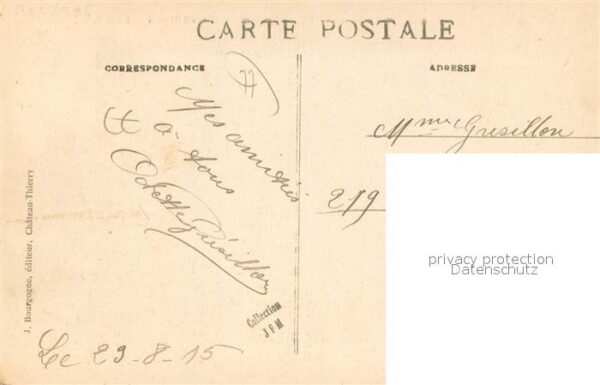 CARTE POSTALE
CORRESPONDANCE
ADRESSE
77
Mes amitiés
à tous
Odette Grésillon
Le 29-8-15
Mme Gresillon
219
J. Bourgogne, éditeur, Château-Thierry
Collection
J F M
privacy protection
Datenschutz